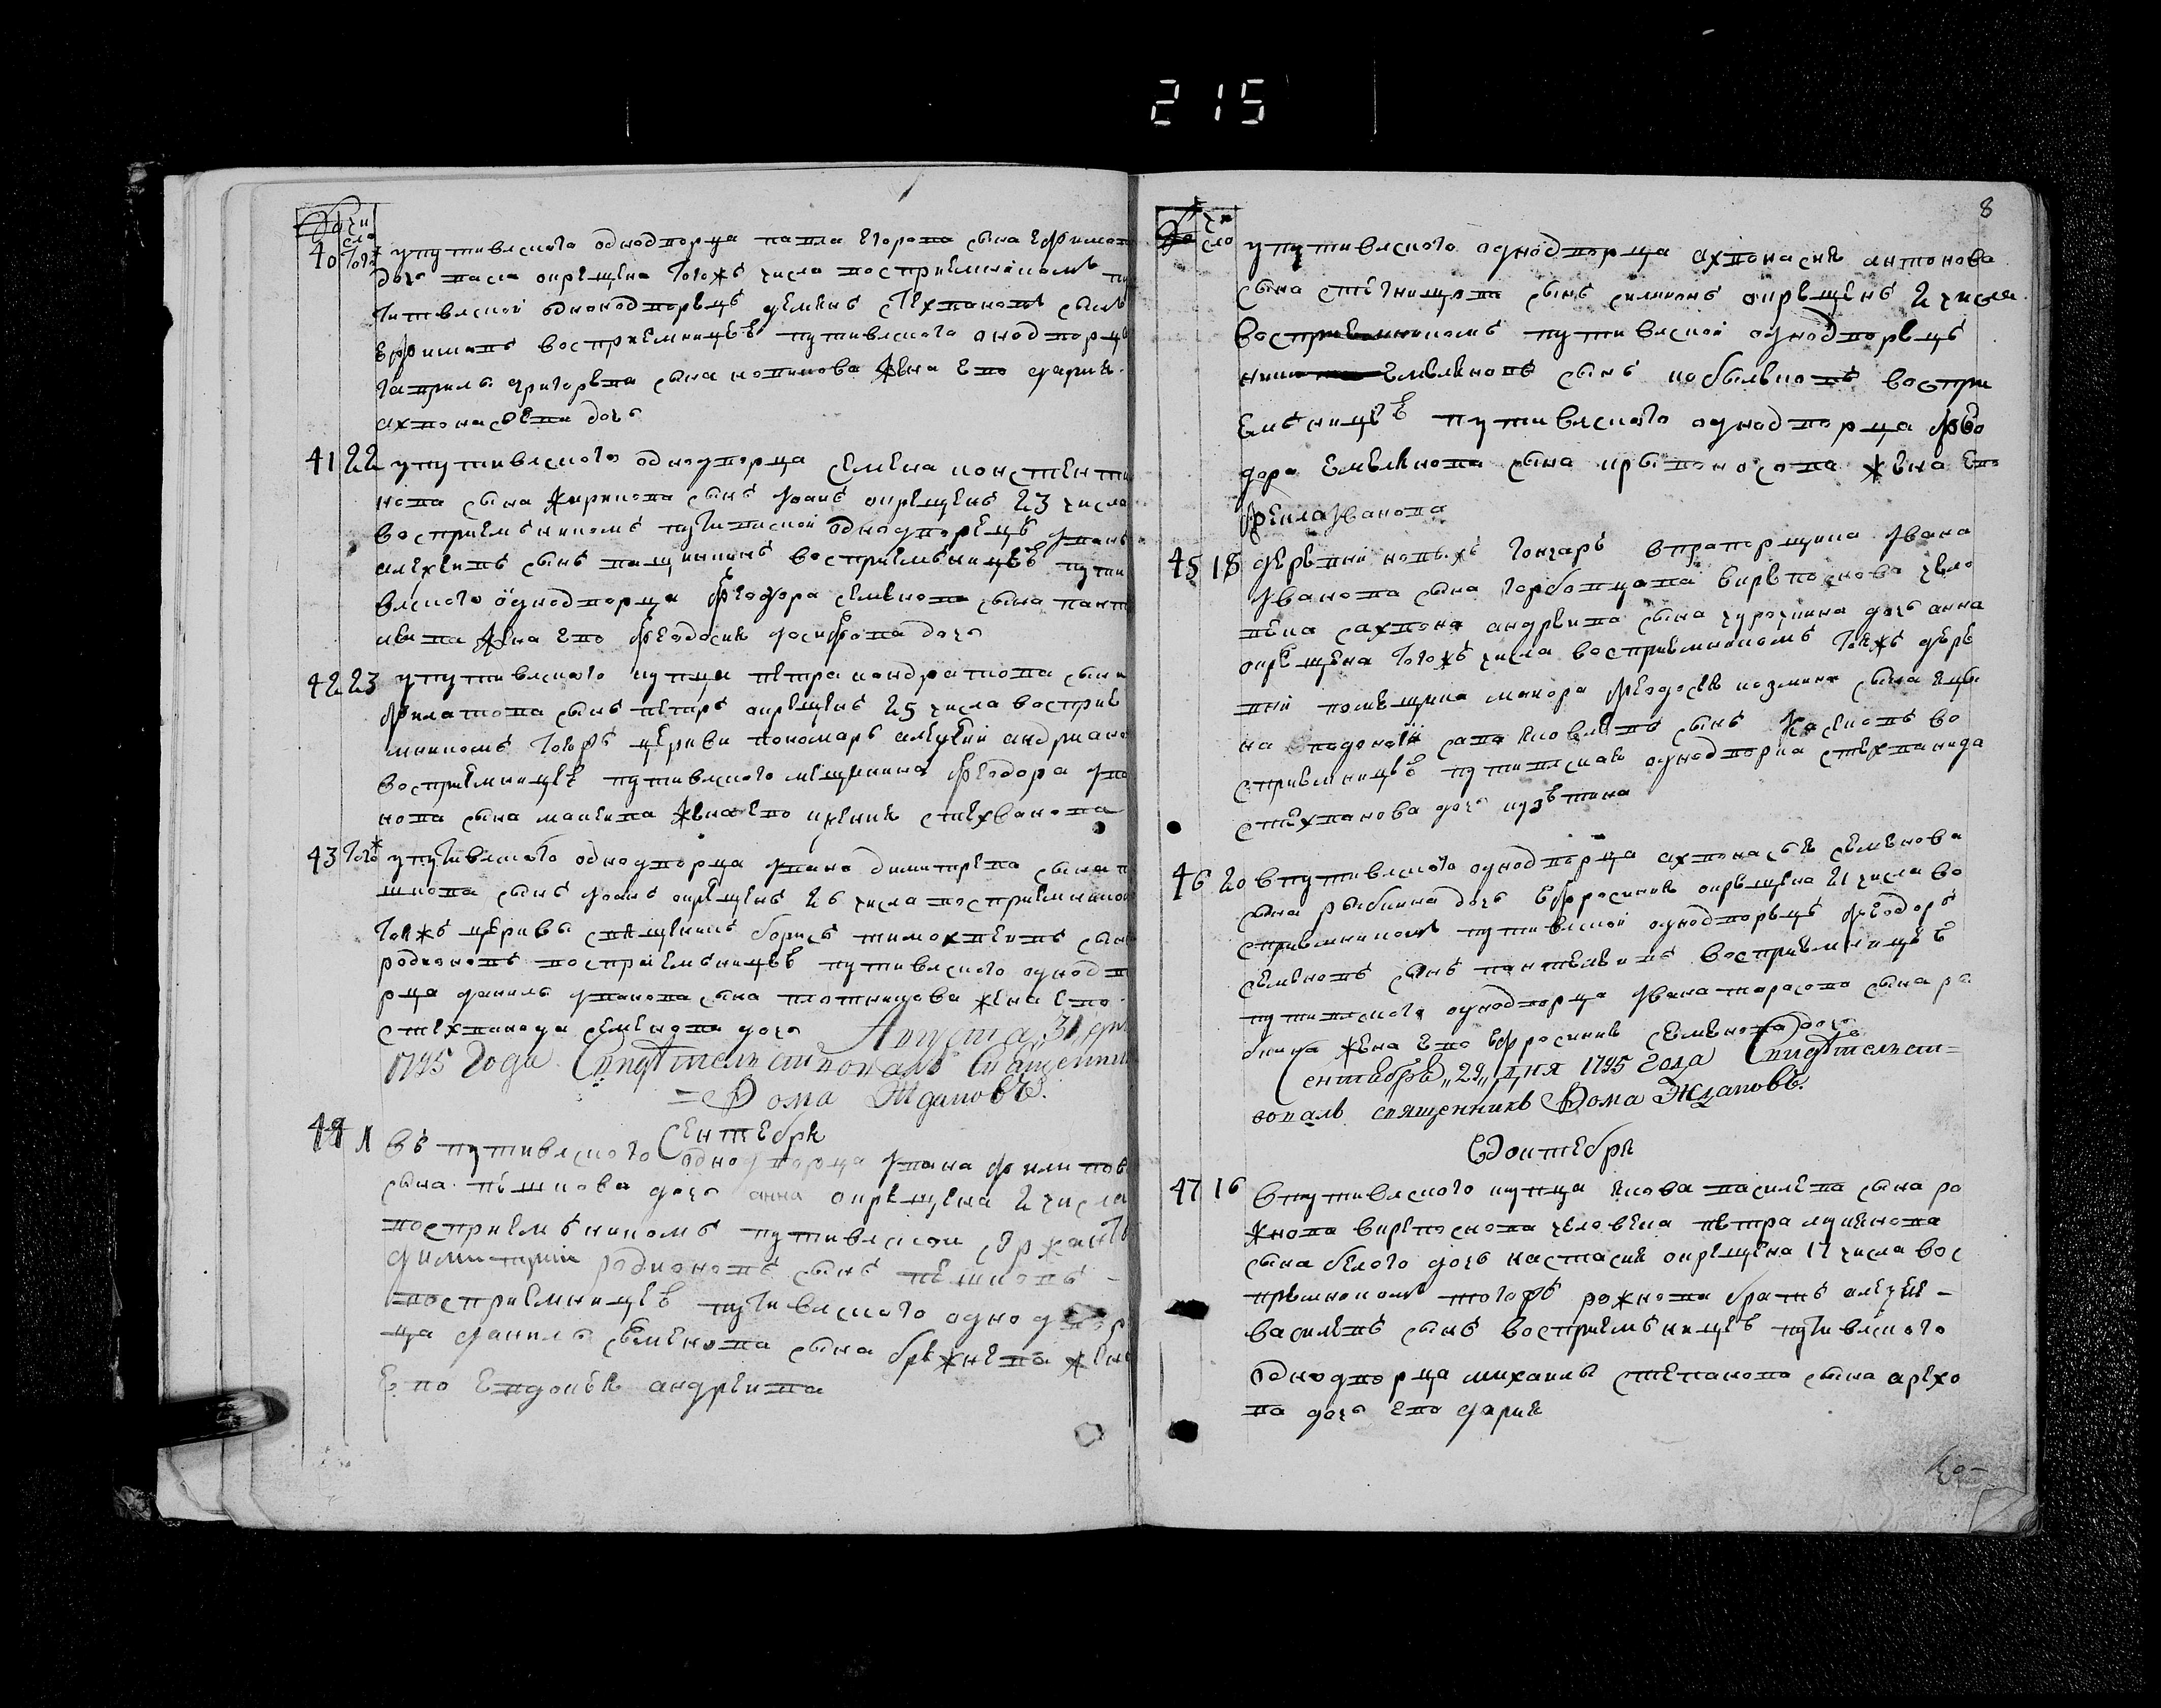 215
чи
сло
40 того ж упутивлского однодворца павла егорова сына ефимо
доч васса окрещена того ж числа восприемником пу
тивлской одноводворец семен стехванов сын
ефиманов восприемницею путивлского онодворца
гаврилы григорева сына новикова жена ево дария
ахвонасева доч
41 22 упутивлского однодворца семена констенти
нова сына жирикова сынъ иоанъ окрещенъ 23 числа
восприемъникомъ путивлской однодворецъ иванъ
алехеивъ сынъ восприемъницею пути
влского однодворца феодора семенова сына панте
лева жена ево феодосия иосифова доч
42 23 упутивлского купца петра кондратова сына
филатова сынъ петръ окрещенъ 25 числа восприе
мникомъ тоеже церкви пономарь алеѯей андриано
восприемницею путивлского мещенина феодора ива
нова сына макеева жена ево ксения стехванова
43 того ж упутивлского однодворца ивана димитрева сына п
шкова сынъ иоанъ окрещенъ 26 числа восприемником
тояжъ церквы священикъ борисъ тимохвеивъ сын
родионовъ восприемъницею путивлского однодво
рца данилы иванова сына плотницова жена ево
стехванида семенова доч Августа „31 дня
1795 года Свидѣтелствовалъ Священник
=Ѳома Ждановъ.
Сентебря
44 1 въ путивлского однодворца ивана филипов
сына пешкова доч анна окрещена 2 числа
восприемъникомъ путивлской сержантъ
димитрий родионовъ сынъ пешковъ -
восприемницею путивлского однодвор
ца данилы семенова сына брежнева жена
ево евдокея андреива
8
чи
сло
упутивлского однодворца ахвонасия антонова
сына стечнищева сынъ симионъ окрещенъ 2 числа
восприемникомъ путивлской однодворецъ
емелянов сынъ кобылковъ воспри
емъницею путивлского однодворца фео
дора емелянова сына крывоносова жена ево
фекла иванова
45 18 деревни новыхъ гончаръ впрапорщика ивана
иванова сына горбовцова вкрепоснова чело
века сахвона андреива сына чурочкина доч анна
окрещена тогожъ числа восприемникомъ тояжъ дере
вни помещика маиора феодосия козмина сына
на сава яковлевъ сынъ во
сприемницею путивлская однодворка стехванида
стехванова доч
46 20 впутивлского однодворца ахвонасия семенова
сына рыбкина доч ефросиния окрещена 21 числа во
сприемникомъ путивлской однодворецъ феодоръ
семеновъ сынъ пантелеивъ восприемницею
путивлского однодворца ивана тарасова сына ры
бкина жена ево ефросиния семенова доч
Сентября „29„ дня 1795 года Свидѣтелст=
вовалъ священникъ Ѳома Ждановъ.
Октебря
47 16 впутивлского купца якова василева сына ро
жнова вкрепоснова человека петра лукянова
сына белого доч настасия окрещена 17 числа вос
приемникомъ тогожъ рожнова братъ алеѯей -
василевъ сынъ восприемъницею путивлского
однодворца михаилы степанова сына арехо
ва доч ево дария